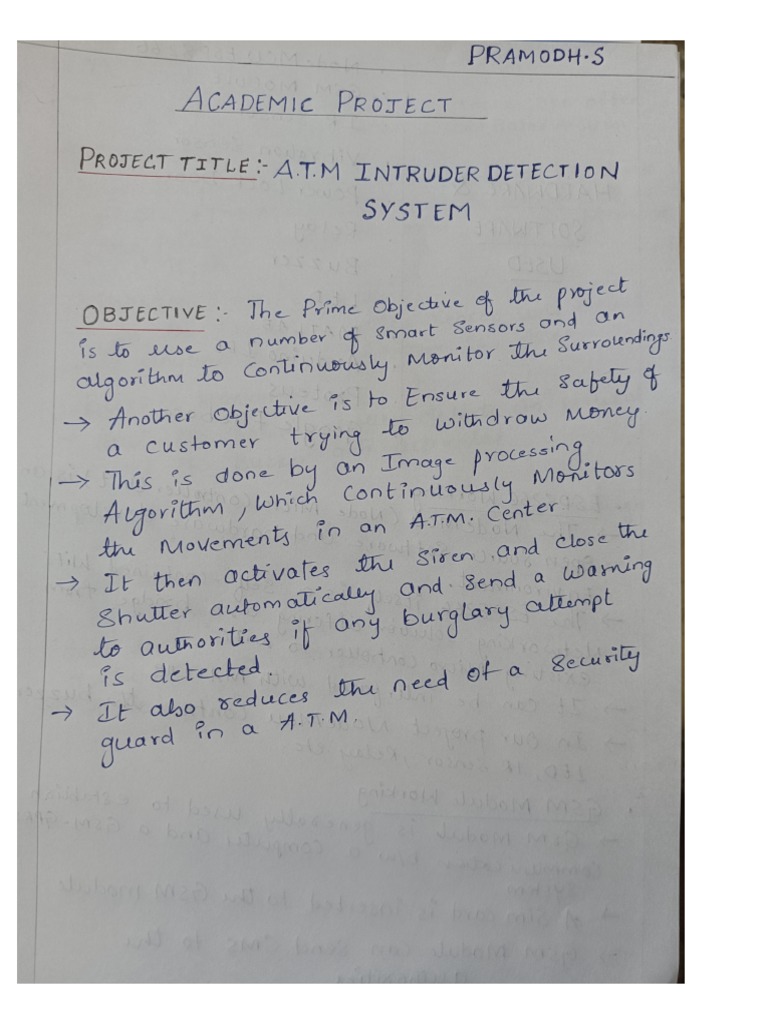 PRAMODH.S
ACADEMIC PROJECT
PROJECT TITLE:- A.T.M INTRUDER DETECTION
SYSTEM
OBJECTIVE:- The Prime Objective of the project
is to use a number of smart sensors and an
algorithm to continuously monitor the surroundings
→ Another objective is to Ensure the safety of
a customer trying to withdraw money.
→ This is done by an Image processing
Algorithm, which continuously Monitors
the Movements in an A.T.M. Center
→ It then activates the siren and close the
shutter automatically and send a warning
to authorities if any burglary attempt
is detected.
→ It also reduces the need of a security
guard in a A.T.M.